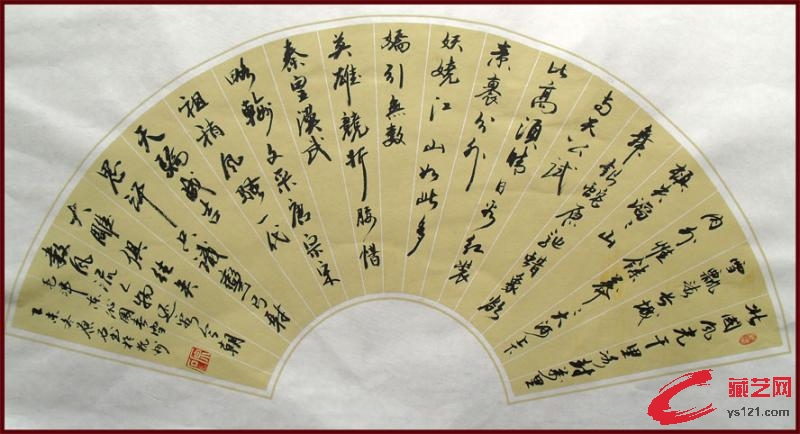 北國風光千里冰封萬里
雪飄望長城
内外惟餘莽莽大河上下
頓失滔滔山
舞銀蛇原馳蠟象欲
与天公試
比高須晴日看紅裝
素裹分外
妖嬈江山如此多
嬌引無數
英雄競折腰惜
秦皇漢武
略輸文采唐宗宋
祖稍遜風騷一代
天驕成吉
思汗只識彎弓射
大雕俱往矣
數風流人物還看今朝
毛澤東沁園春雪
未太原石玉於杭州
藏艺网
ys121.com